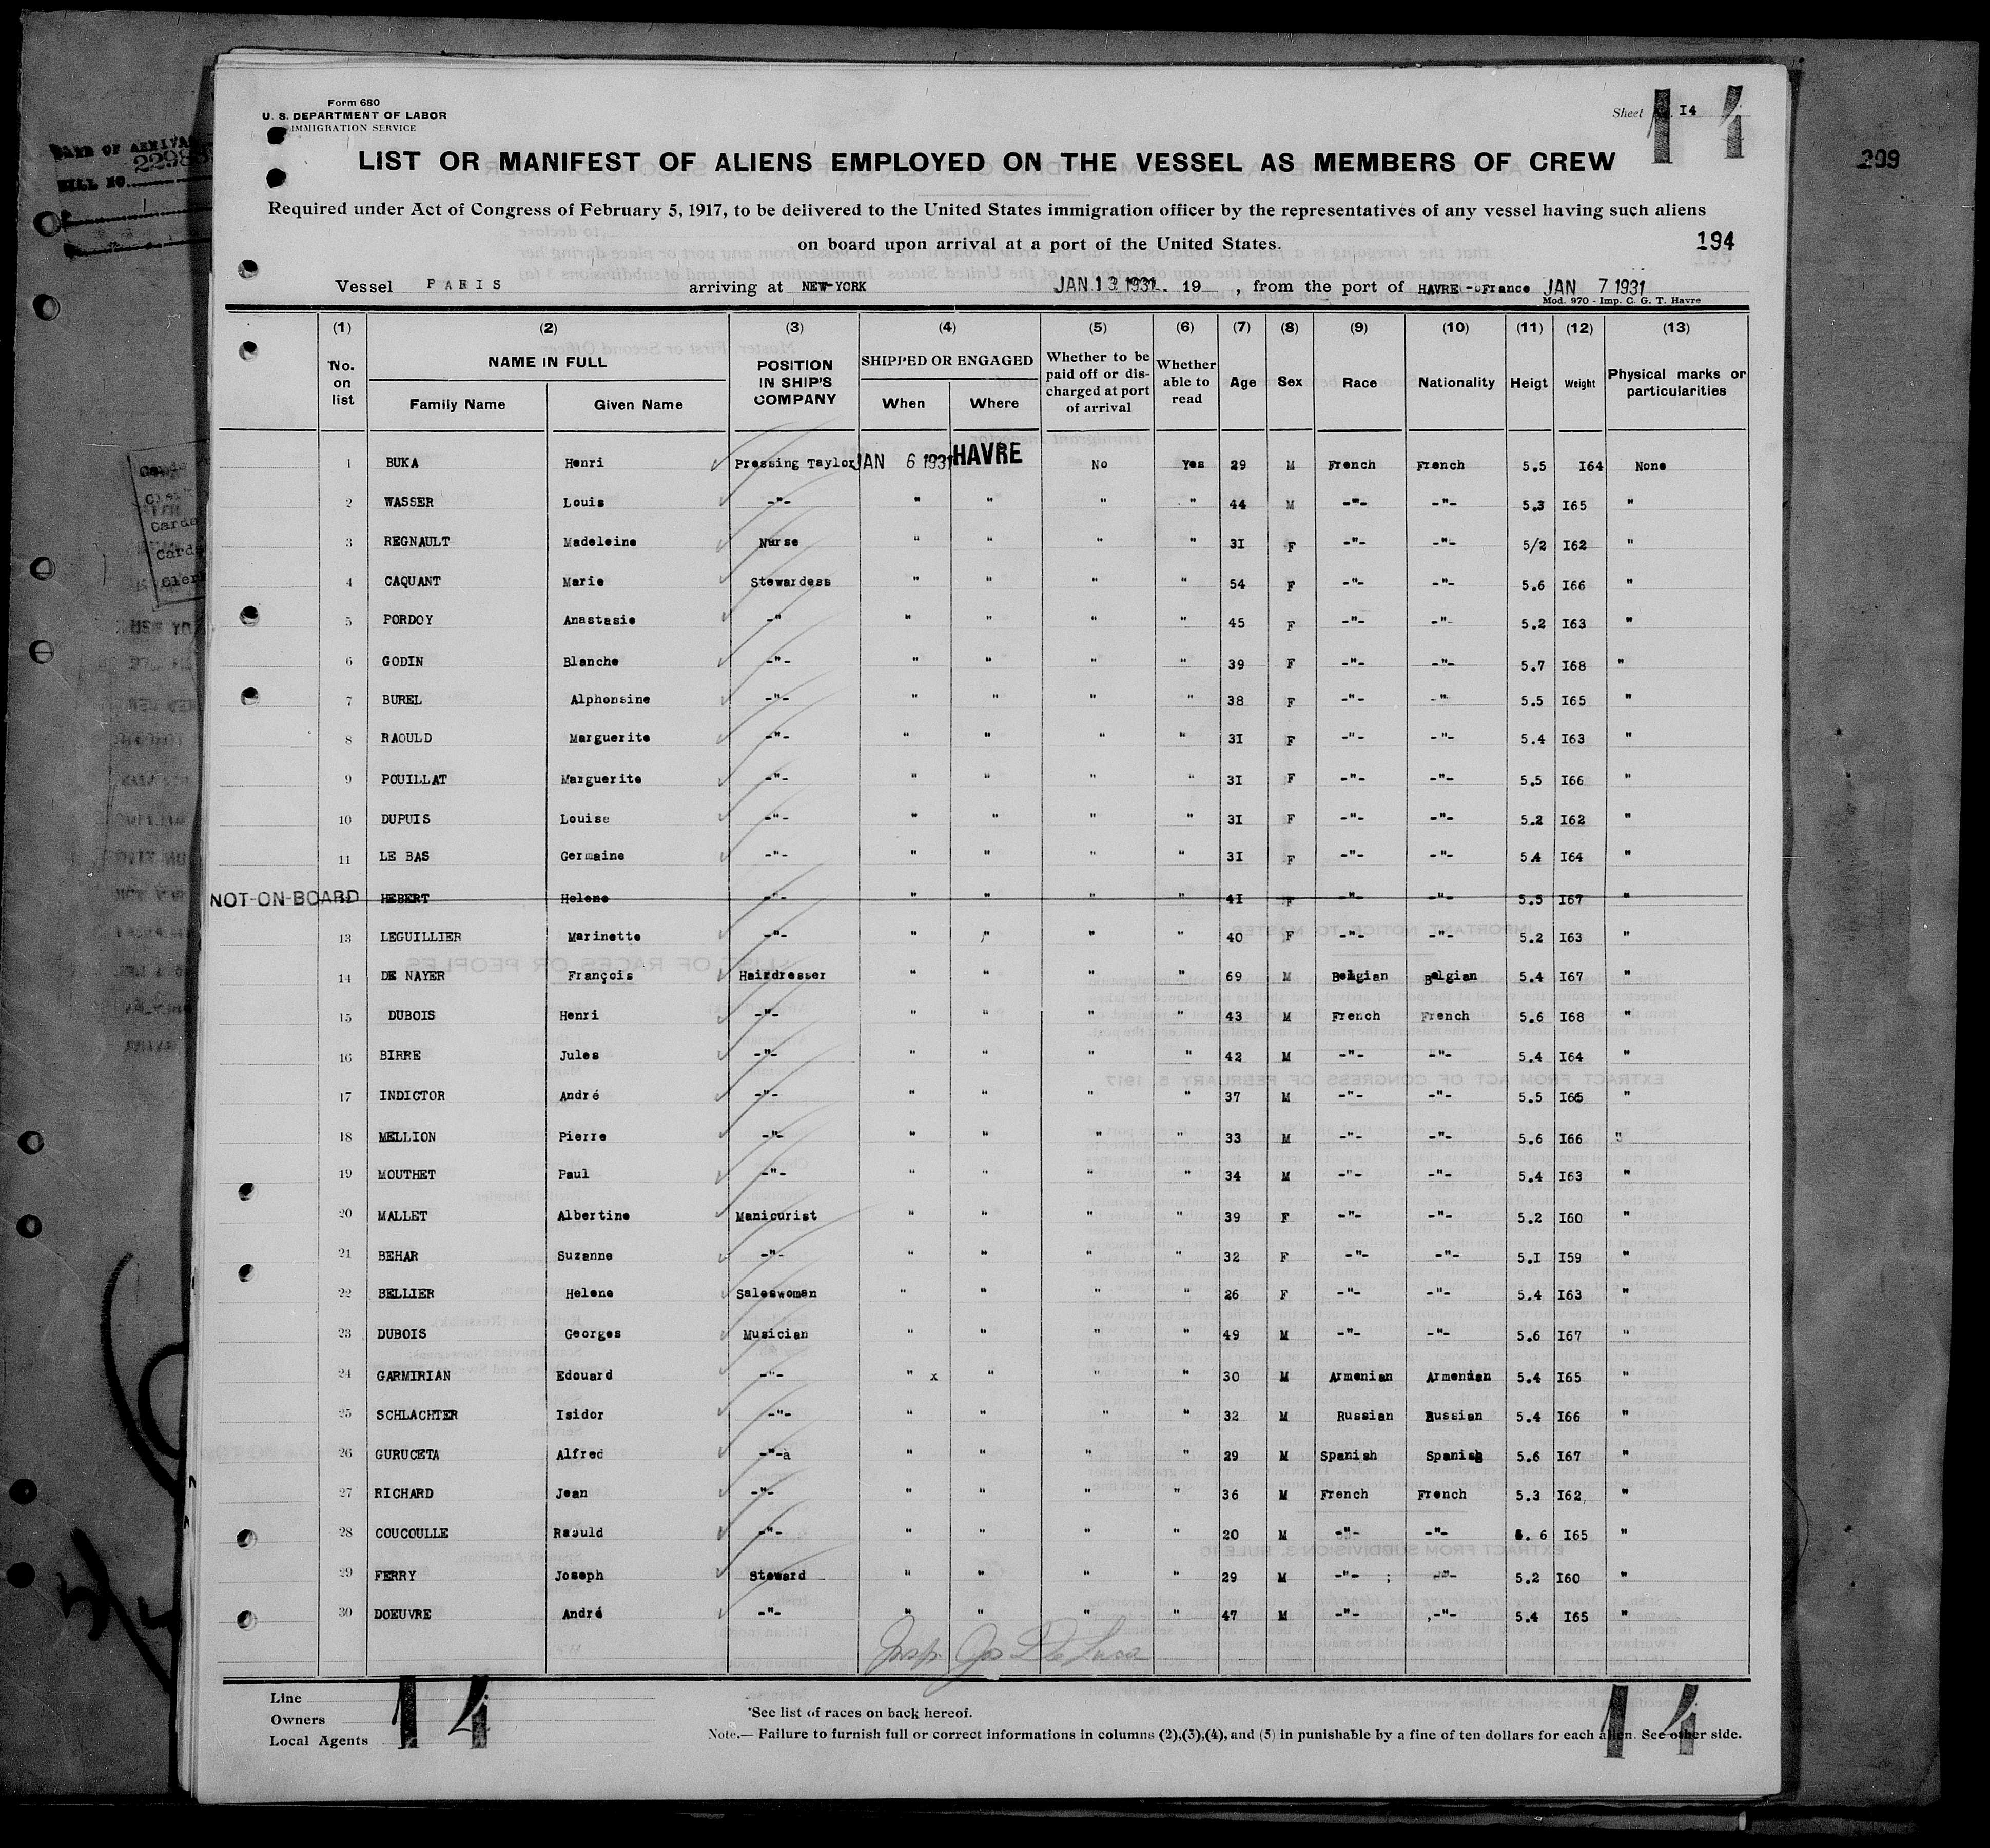 Form 680
U. S. DEPARTMENT OF LABOR
IMMIGRATION SERVICE
Sheet I4
14
LIST OR MANIFEST OF ALIENS EMPLOYED ON THE VESSEL AS MEMBERS OF CREW
Required under Act of Congress of February 5, 1917, to be delivered to the United States immigration officer by the representatives of any vessel having such aliens
on board upon arrival at a port of the United States.
194
209
Vessel PARIS arriving at NEW-YORK JAN 13 1931 19 , from the port of HAVRE - France JAN 7 1931
Mod. 970 - Imp. C. G. T. Havre
(1) (2) (3) (4) (5) (6) (7) (8) (9) (10) (11) (12) (13)
No. on list NAME IN FULL Family Name Given Name POSITION IN SHIP'S COMPANY SHIPPED OR ENGAGED When Where Whether to be paid off or discharged at port of arrival Whether able to read Age Sex Race Nationality Heigt Weight Physical marks or particularities
1 BUKA Henri Pressing Taylor JAN 6 1931 HAVRE No Yes 29 M French French 5.5 I64 None
2 WASSER Louis -"- " " " " 44 M -"- -"- 5.3 I65 "
3 REGNAULT Madeleine Nurse " " " " 3I F -"- -"- 5/2 I62 "
4 CAQUANT Marie Stewardess " " " " 54 F -"- -"- 5.6 I66 "
5 PORDOY Anastasie -" " " " " 45 F -"- -"- 5.2 I63 "
6 GODIN Blanche -"- " " " " 39 F -"- -"- 5.7 I68 "
7 BUREL Alphonsine -"- " " " " 38 F -"- -"- 5.5 I65 "
8 RAOULD Marguerite -"- " " " " 3I F -"- -"- 5.4 I63 "
9 POUILLAT Marguerite -"- " " " " 3I F -"- -"- 5.5 I66 "
10 DUPUIS Louise -"- " " " " 3I F -"- -"- 5.2 I62 "
11 LE BAS Germaine -"- " " " " 3I F -"- -"- 5.4 I64 "
NOT-ON-BOARD HEBERT Helene -"- " " " " 4I F -"- -"- 5.5 I67 "
13 LEGUILLIER Marinette -"- " " " " 40 F -"- -"- 5.2 I63 "
14 DE NAYER François Hairdresser " " " " 69 M Belgian Belgian 5.4 I67 "
15 DUBOIS Henri -"- " " " " 43 M French French 5.6 I68 "
16 BIRRE Jules -"- " " " " 42 M -"- -"- 5.4 I64 "
17 INDICTOR André -"- " " " " 37 M -"- -"- 5.5 I65 "
18 MELLION Pierre -"- " " " " 33 M -"- -"- 5.6 I66 "
19 MOUTHET Paul -"- " " " " 34 M -"- -"- 5.4 I63 "
20 MALLET Albertine Manicurist " " " " 39 F -"- -"- 5.2 I60 "
21 BEHAR Suzanne -"- " " " " 32 F -"- -"- 5.I I59 "
22 BELLIER Helene Saleswoman " " " " 26 F -"- -"- 5.4 I63 "
23 DUBOIS Georges Musician " " " " 49 M -"- -"- 5.6 I67 "
24 GARMIRIAN Edouard -"- " x " " " 30 M Armenian Armenian 5.4 I65 "
25 SCHLACHTER Isidor -"- " " " " 32 M Russian Russian 5.4 I66 "
26 GURUCETA Alfred -"-à " " " " 29 M Spanish Spanish 5.6 I67 "
27 RICHARD Jean -"- " " " " 36 M French French 5.3 I62 "
28 COUCOULLE Raould -"- " " " " 20 M -"- -"- 5. 6 I65 "
29 FERRY Joseph Steward " " " " 29 M -"- -"- 5.2 I60 "
30 DOEUVRE André -"- " " " " 47 M -"- -"- 5.4 I65 "
Insp. Jos De Luca
Line
Owners
Local Agents
14
14
*See list of races on back hereof.
Note.— Failure to furnish full or correct informations in columns (2),(3),(4), and (5) in punishable by a fine of ten dollars for each alien. See other side.